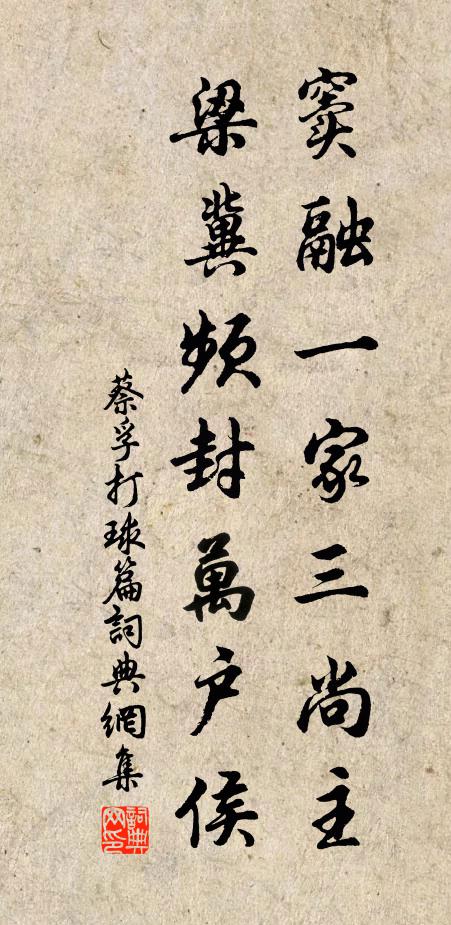 竇融一家三尚主
梁冀頻封萬户侯
蔡孚打球篇詞典網集
詞典網印